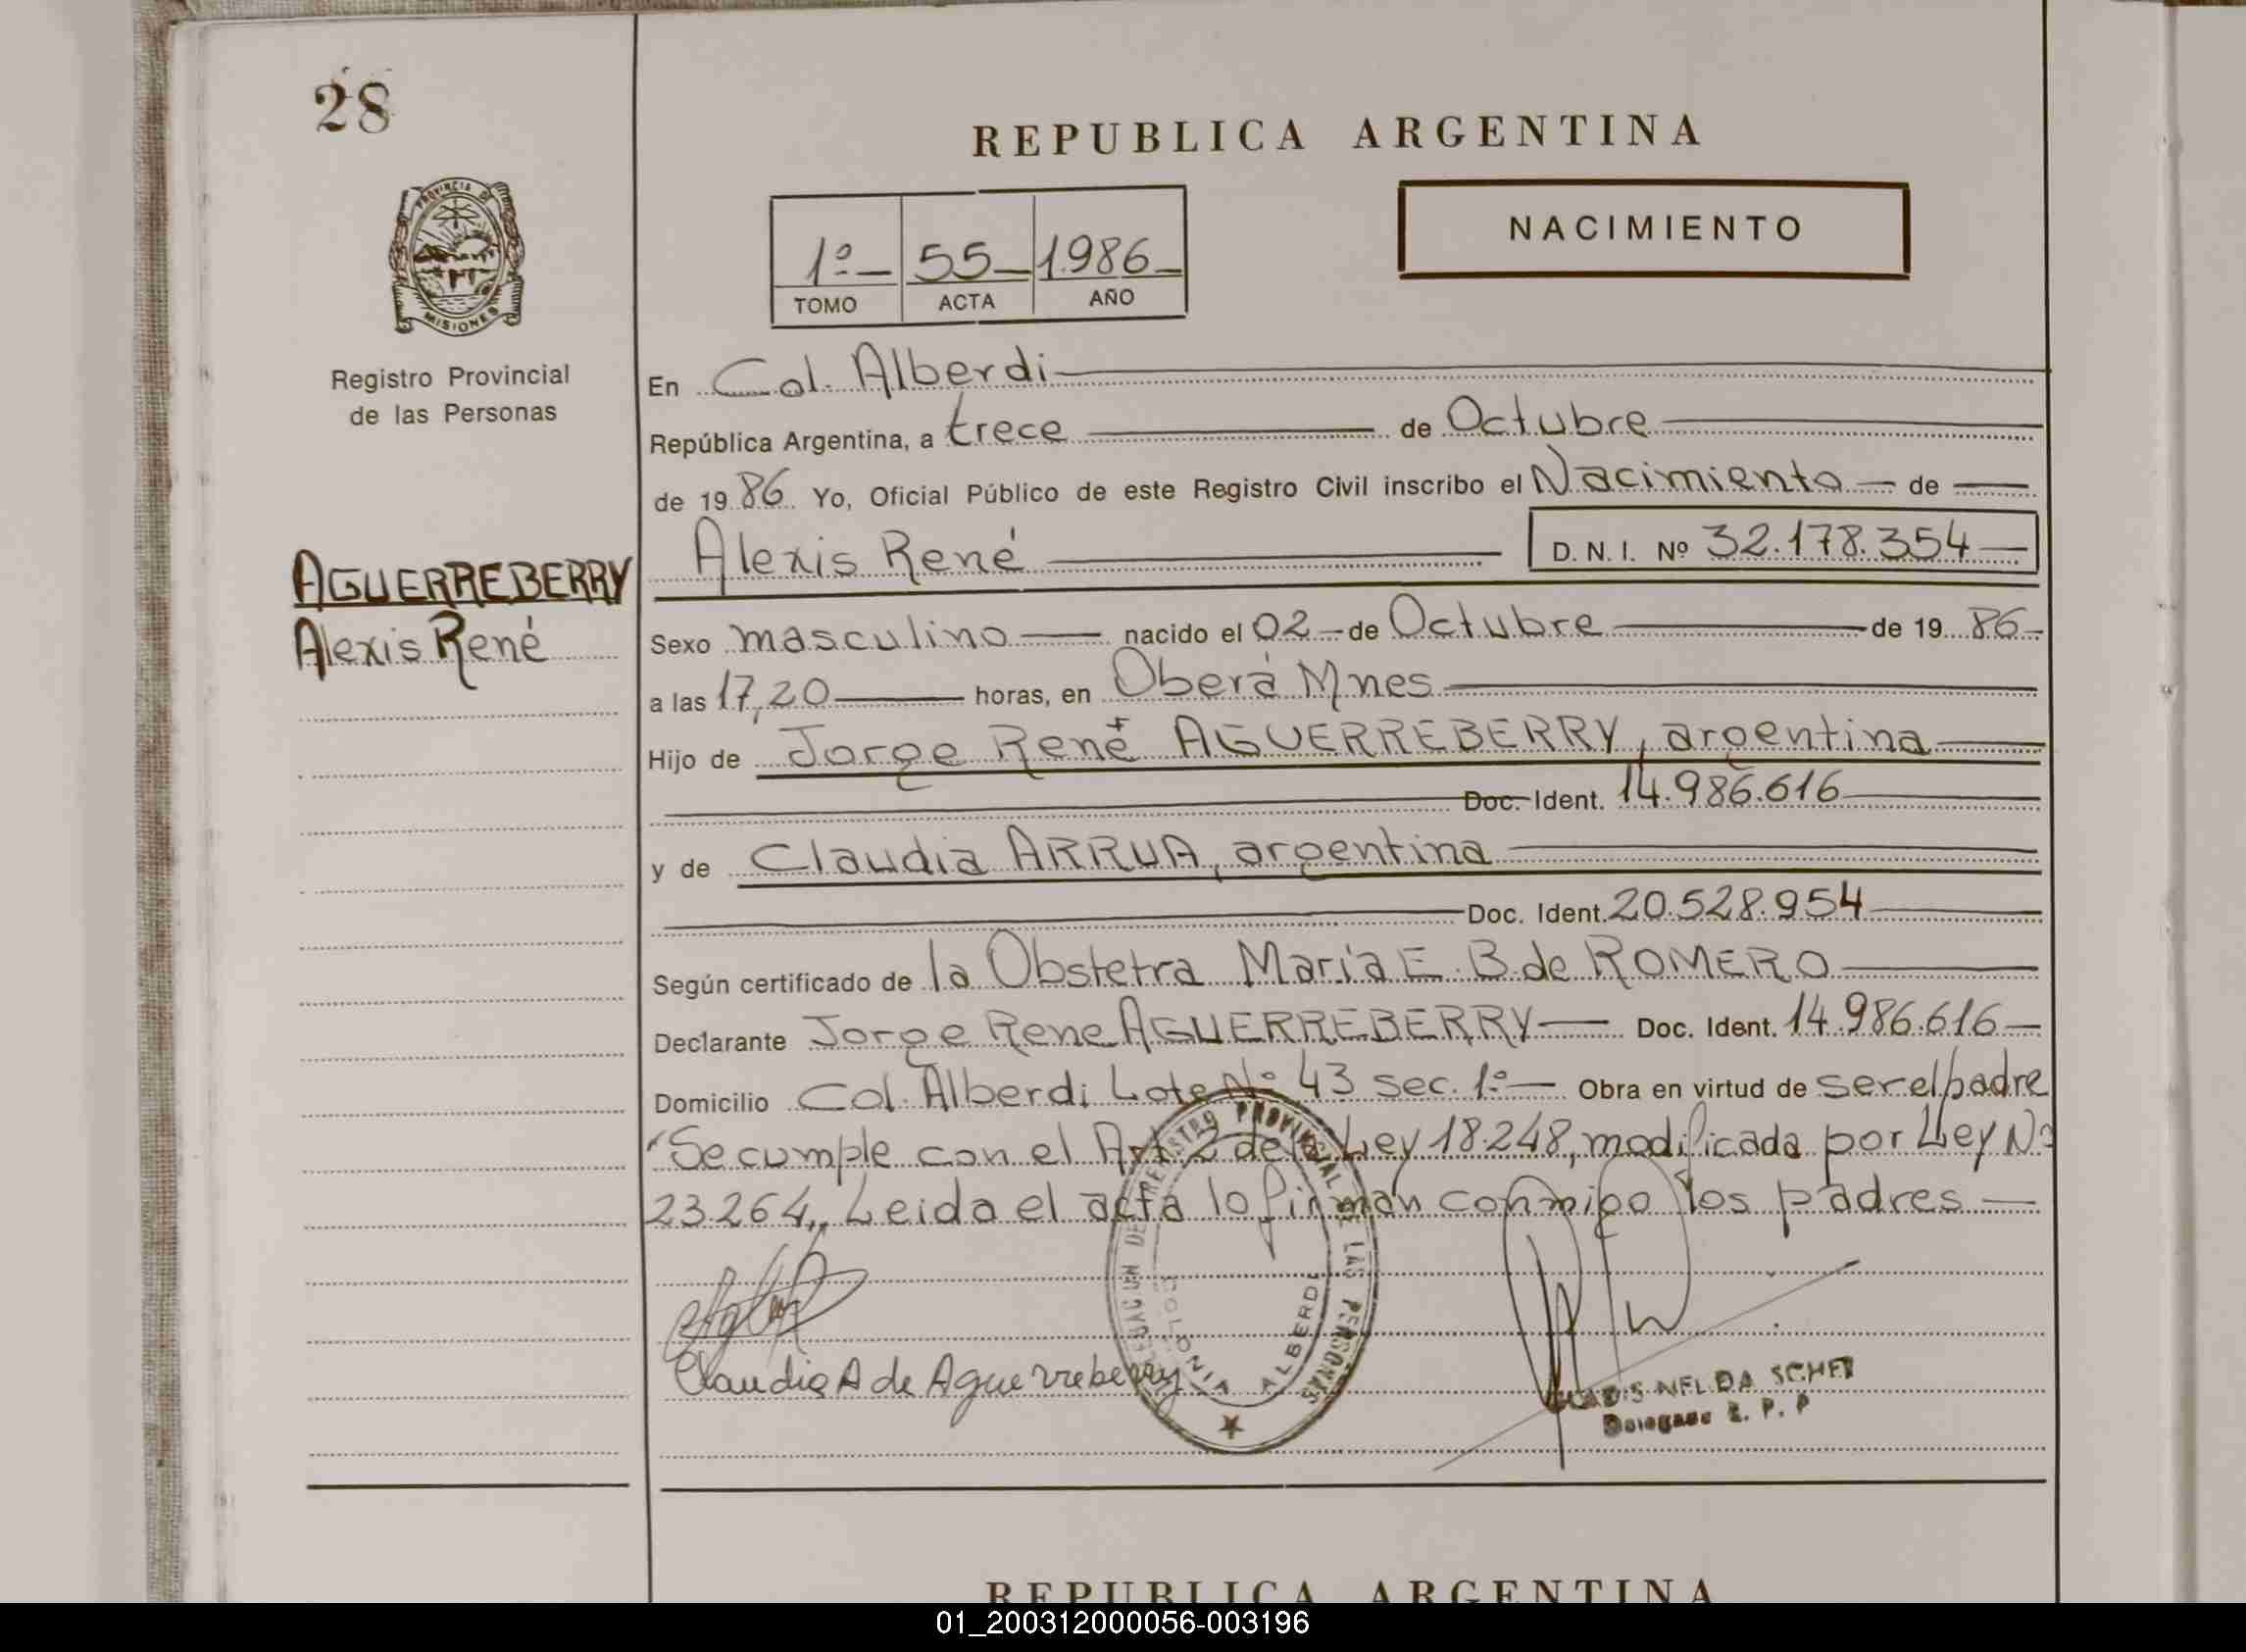 28
REPUBLICA ARGENTINA
PROVINCIA DE
MISIONES
Registro Provincial
de las Personas
1º 55 1.986
TOMO ACTA AÑO
NACIMIENTO
AGUERREBERRY
Alexis René
En Col. Alberdi
República Argentina, a trece de Octubre
de 19 86 Yo, Oficial Público de este Registro Civil inscribo el Nacimiento de
Alexis René D. N. I. Nº 32.178.354
Sexo masculino nacido el 02 de Octubre de 19 86
a las 17,20 horas, en Oberá Mnes
Hijo de Jorge René AGUERREBERRY, argentina
Doc. Ident. 14.986.616
y de Claudia ARRUA, argentina
Doc. Ident. 20.528.954
Según certificado de la Obstetra María E. B. de ROMERO
Declarante Jorge Rene AGUERREBERRY Doc. Ident. 14.986.616
Domicilio Col. Alberdi Lote Nº 43 sec. 1º Obra en virtud de ser el padre
"Se cumple con el Art. 2 de la Ley 18.248, modificada por Ley Nº
23.264,, Leida el acta lo firman conmigo los padres
DELEGACION DE REGISTRO PROVINCIAL DE LAS PERSONAS
COLONIA ALBERDI
Claudia A de Aguerreberry
NELDA
REPUBLICA ARGENTINA
01_200312000056-003196